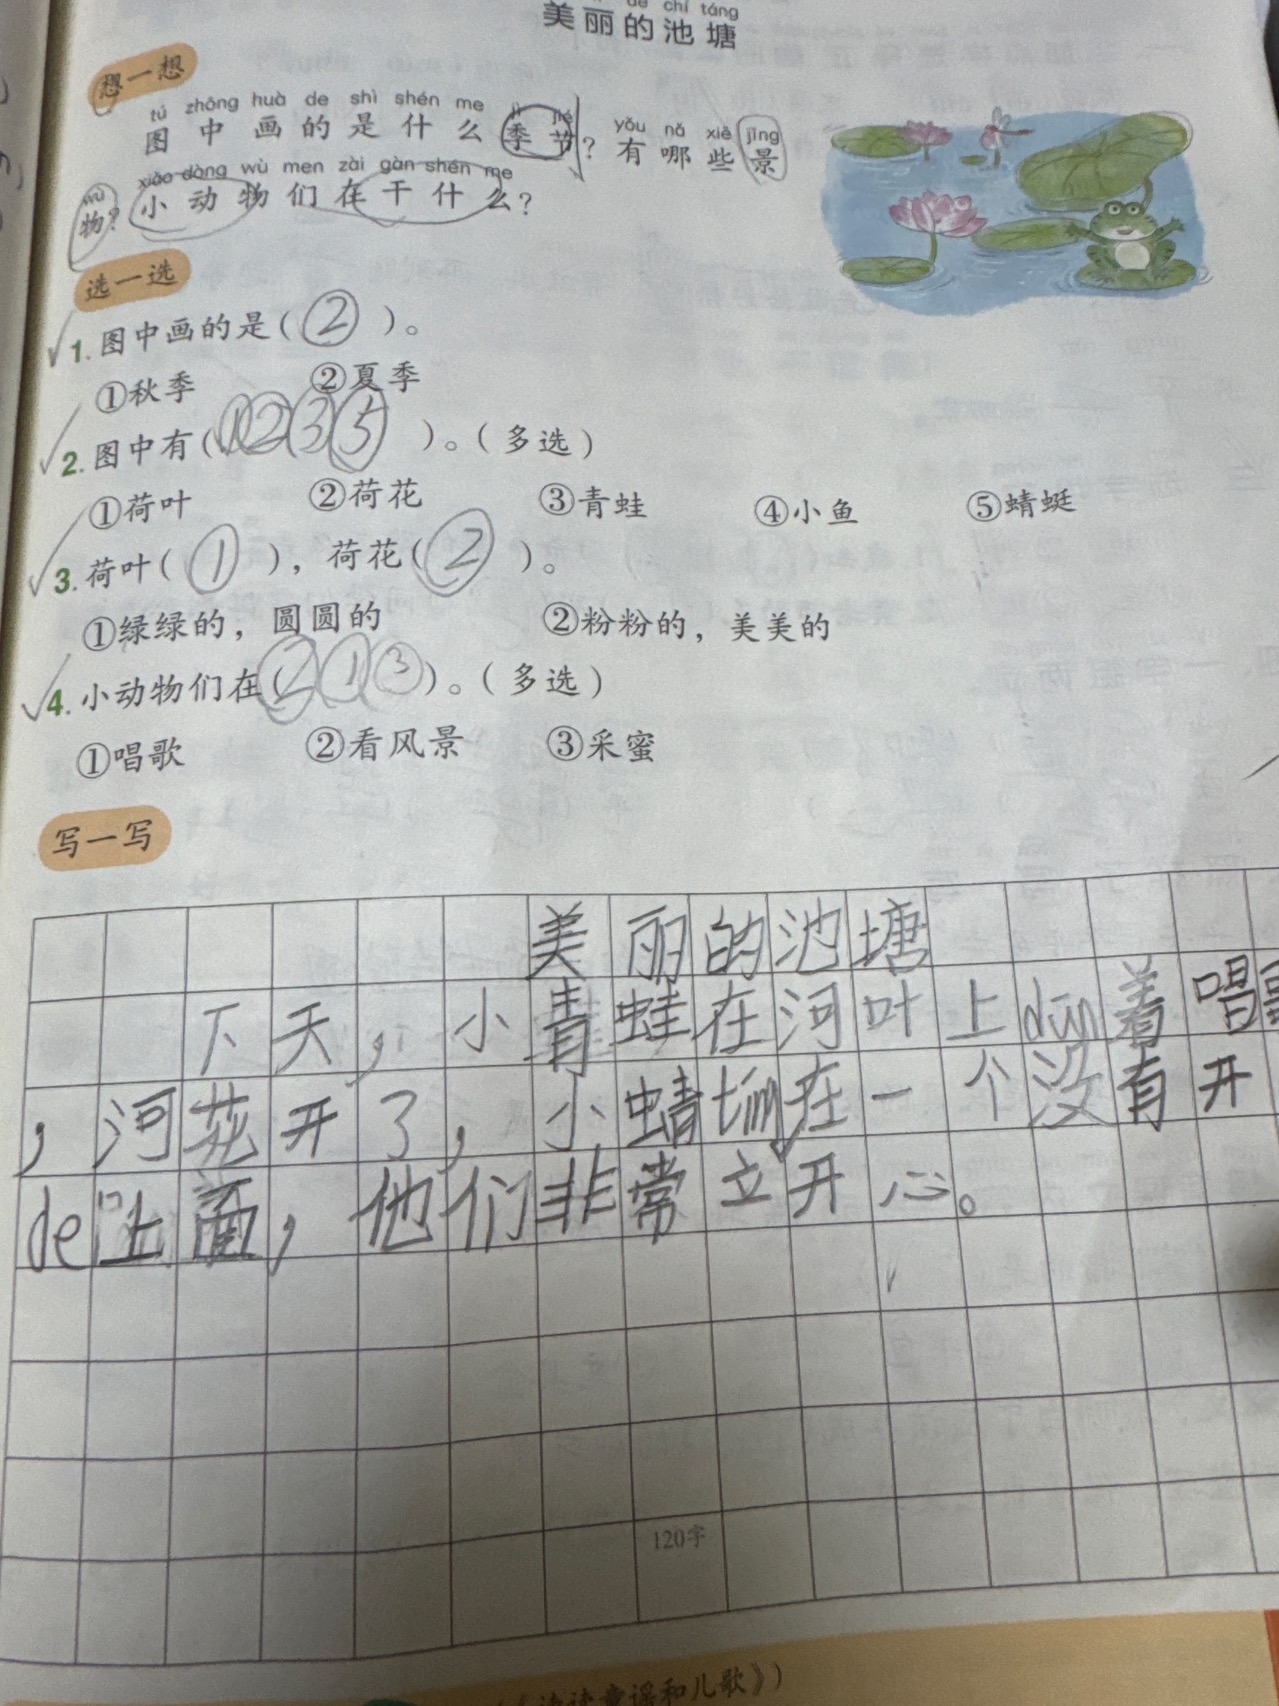 de chí táng
美丽的池塘
想一想
tú zhōng huà de shì shén me jì jié yǒu nǎ xiē jǐng
图中画的是什么季节？有哪些景
wù xiǎo dòng wù men zài gàn shén me
物？小动物们在干什么？
选一选
1. 图中画的是（②）。
①秋季 ②夏季
2. 图中有（①②③⑤）。（多选）
①荷叶 ②荷花 ③青蛙 ④小鱼 ⑤蜻蜓
3. 荷叶（①），荷花（②）。
①绿绿的，圆圆的 ②粉粉的，美美的
4. 小动物们在（②①③）。（多选）
①唱歌 ②看风景 ③采蜜
写一写
美丽的池塘
下天，小青蛙在河叶上dūn着唱
，河花开了，小蜻 在一个没有开
de上面，他们非常 开心。
120字
读童谣和儿歌》）